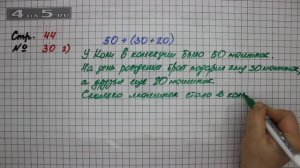 4 5
Стр. 44
№ 30 2)
50 + (30 + 20)
У Коли в коллекции было 50 машинок.
На день рождения брат подарил ему 30 машинок,
а друзья ещё 20 машинок.
Сколько машинок стало в кол